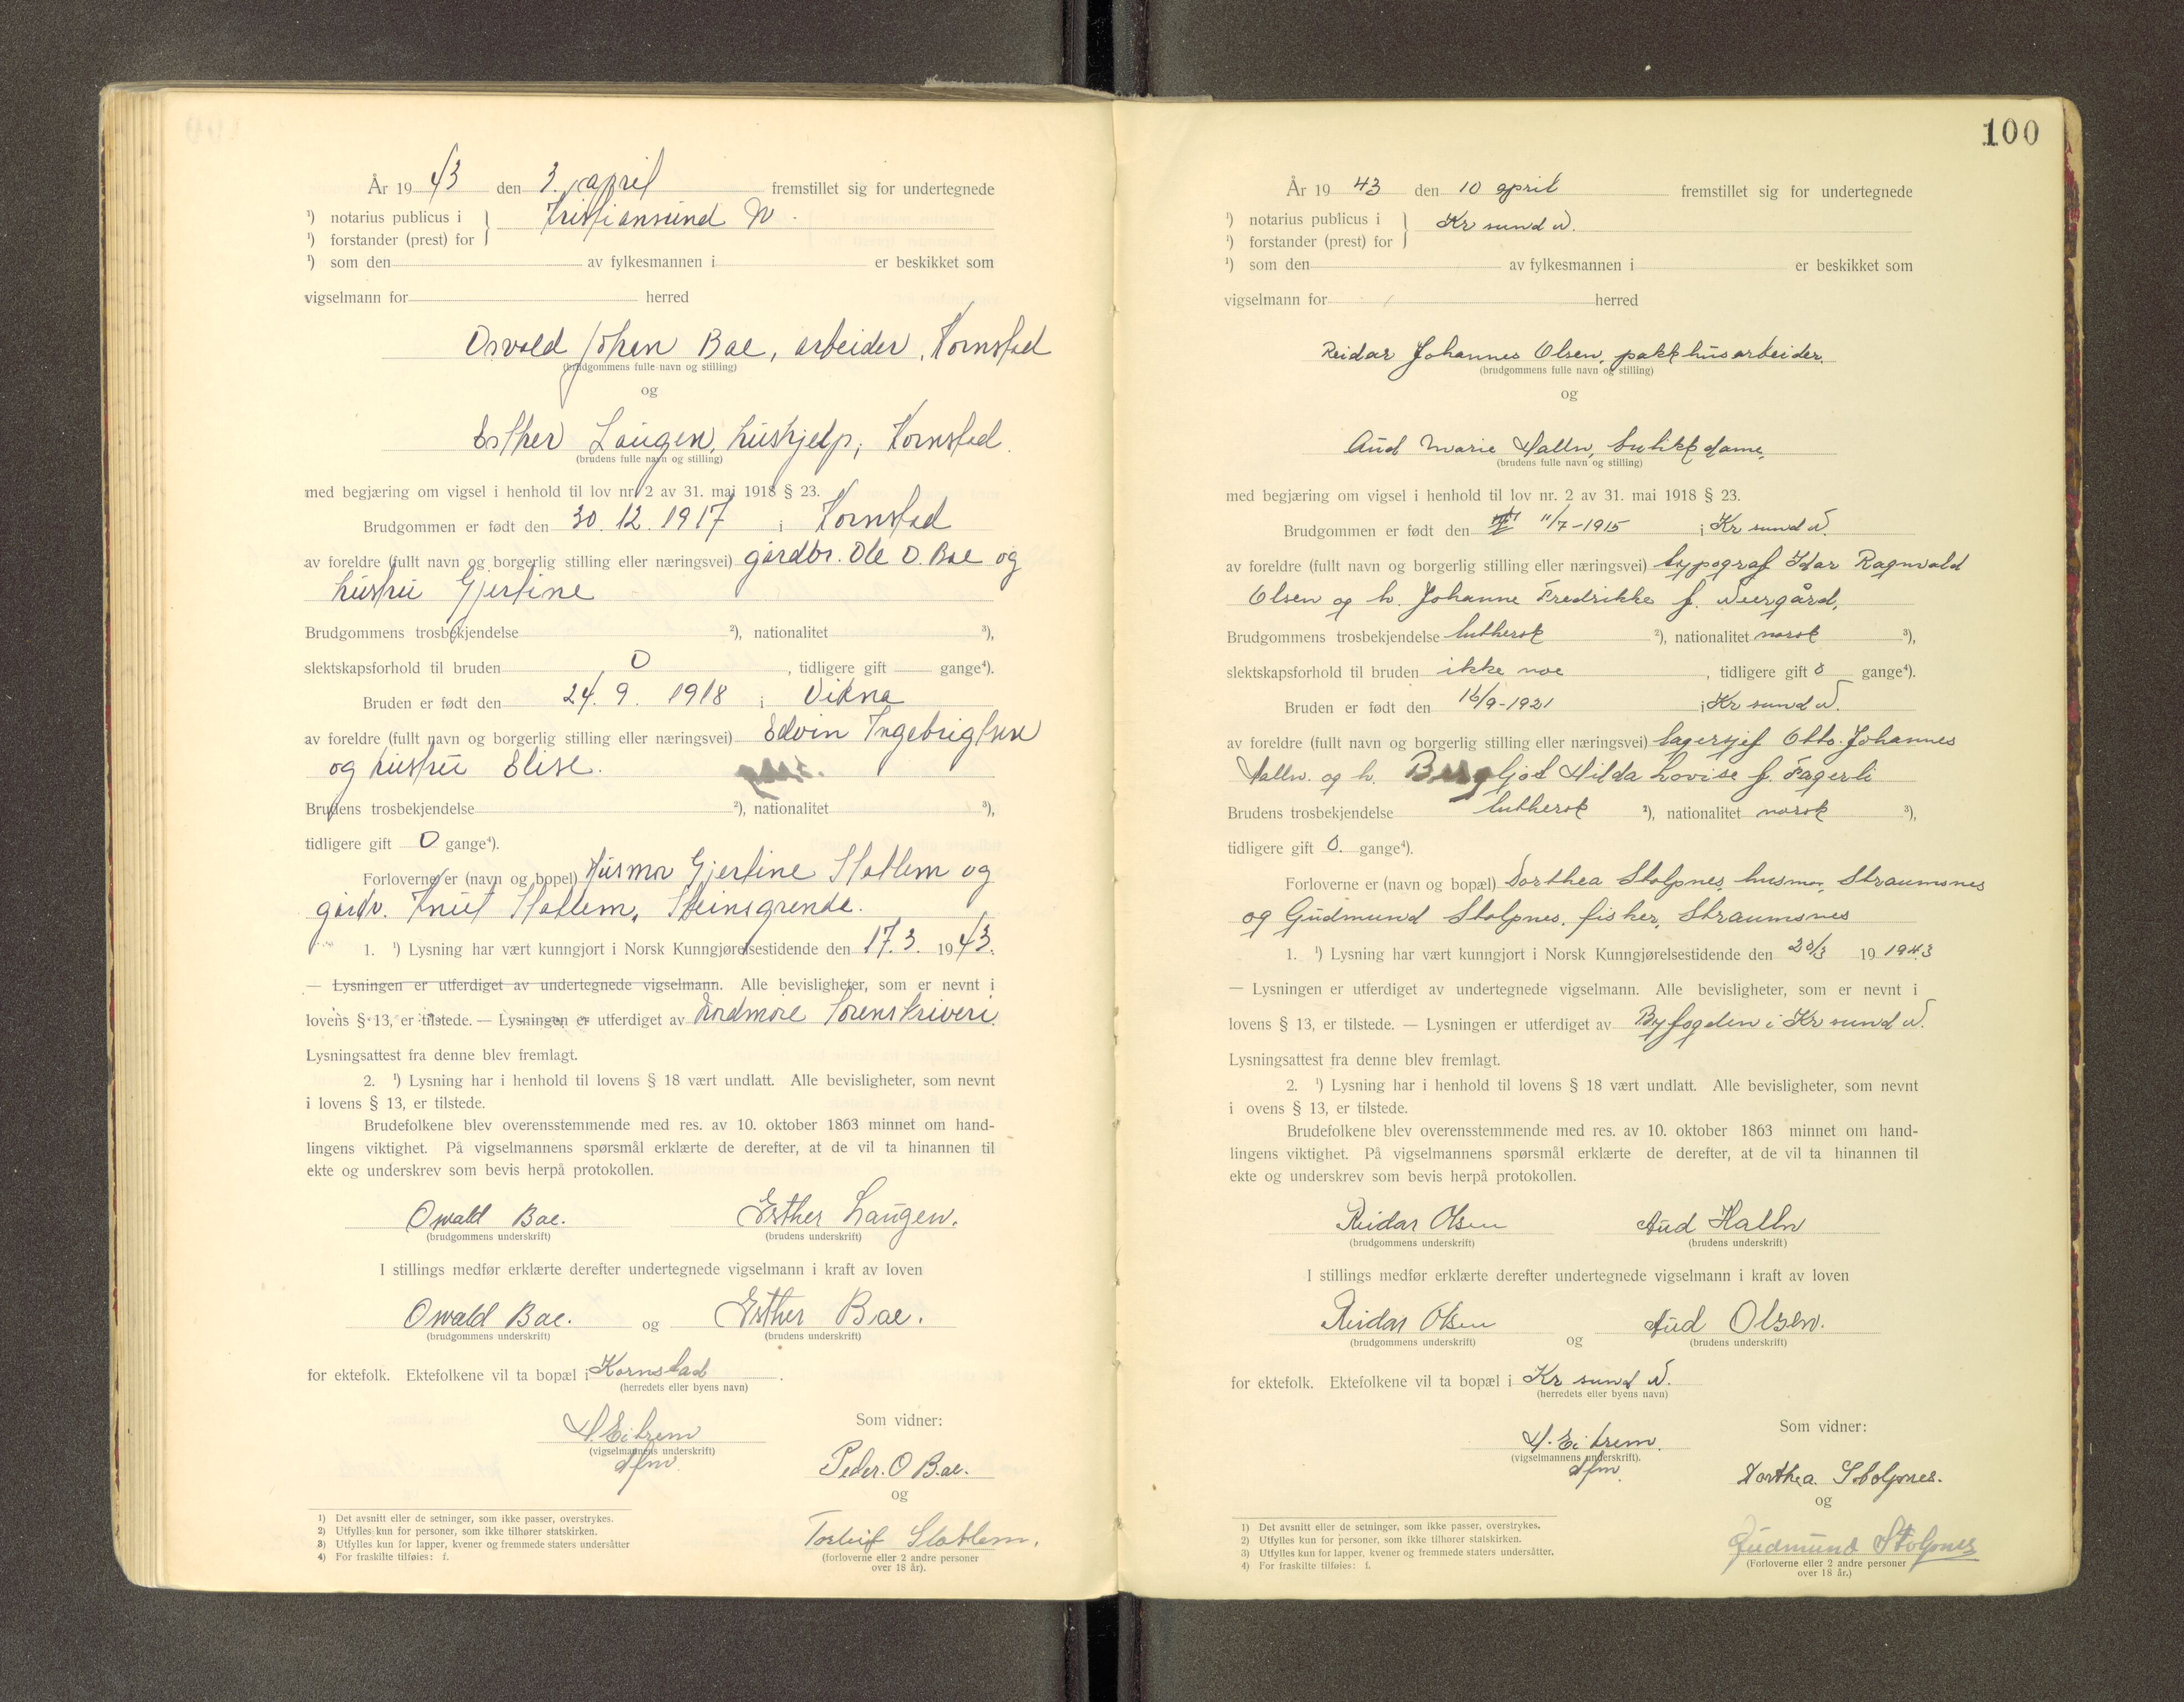 År 19 43 den 3. april fremstillet sig for undertegnede
¹) notarius publicus i
Kristiansund N.
¹) forstander (prest) for
¹) som den av fylkesmannen i er beskikket som
vigselmann for herred
Osvald Johan Bae, arbeider, Kornstad
(brudgommens fulle navn og stilling)
og
Esther Laugen, hushjelp, Kornstad.
(brudens fulle navn og stilling)
med begjæring om vigsel i henhold til lov nr. 2 av 31. mai 1918 § 23.
Brudgommen er født den 30. 12. 1917 i Kornstad
av foreldre (fullt navn og borgerlig stilling eller næringsvei) gårdbr. Ole O. Bae og
hustru Gjertine
Brudgommens trosbekjendelse ²), nationalitet ³),
slektskapsforhold til bruden 0 , tidligere gift gange⁴).
Bruden er født den 24. 9. 1918 i Vikna
av foreldre (fullt navn og borgerlig stilling eller næringsvei) Edvin Ingebrigtsen
og hustru Elise.
Brudens trosbekjendelse ²), nationalitet ³),
tidligere gift 0 gange⁴).
Forloverne er (navn og bopel) Husmor Gjertine Slatlem og
gårdbr. Knut Slatlem, Steinsgrende.
1. ¹) Lysning har vært kunngjort i Norsk Kunngjørelsestidende den 17. 3. 1943.
— Lysningen er utferdiget av undertegnede vigselmann. Alle bevisligheter, som er nevnt i
lovens § 13, er tilstede. — Lysningen er utferdiget av Nordmøre Sorenskriveri.
Lysningsattest fra denne blev fremlagt.
2. ¹) Lysning har i henhold til lovens § 18 vært undlatt. Alle bevisligheter, som nevnt
i lovens § 13, er tilstede.
Brudefolkene blev overensstemmende med res. av 10. oktober 1863 minnet om hand-
lingens viktighet. På vigselmannens spørsmål erklærte de derefter, at de vil ta hinannen til
ekte og underskrev som bevis herpå protokollen.
Oswald Bae. Esther Laugen.
(brudgommens underskrift) (brudens underskrift)
I stillings medfør erklærte derefter undertegnede vigselmann i kraft av loven
Oswald Bae. og Esther Bae.
(brudgommens underskrift) (brudens underskrift)
for ektefolk. Ektefolkene vil ta bopæl i Kornstad.
(herredets eller byens navn)
H. Eitrem
(vigselmannens underskrift)
dfm.
Som vidner:
Peder. O Bae.
og
Torleif Slatlem.
(forloverne eller 2 andre personer
over 18 år).
1) Det avsnitt eller de setninger, som ikke passer, overstrykes.
2) Utfylles kun for personer, som ikke tilhører statskirken.
3) Utfylles kun for lapper, kvener og fremmede staters undersåtter
4) For fraskilte tilføies: f.
100
År 19 43 den 10 april fremstillet sig for undertegnede
¹) notarius publicus i
Kr sund N.
¹) forstander (prest) for
¹) som den av fylkesmannen i er beskikket som
vigselmann for herred
Reidar Johannes Olsen, pakkhusarbeider.
(brudgommens fulle navn og stilling)
og
Aud Marie Halln, butikkdame.
(brudens fulle navn og stilling)
med begjæring om vigsel i henhold til lov nr. 2 av 31. mai 1918 § 23.
Brudgommen er født den 11/7-1915 i Kr sund N.
av foreldre (fullt navn og borgerlig stilling eller næringsvei) typograf Idar Ragnvald
Olsen og h. Johanne Fredrikke f. Neergård,
Brudgommens trosbekjendelse luthersk ²), nationalitet norsk ³),
slektskapsforhold til bruden ikke noe , tidligere gift 0 gange⁴).
Bruden er født den 16/9-1921 i Kr sund N.
av foreldre (fullt navn og borgerlig stilling eller næringsvei) lagersjef Otto Johannes
Halln. og h. Bergljot Hilda Lovise f. Fagerli
Brudens trosbekjendelse luthersk ²), nationalitet norsk ³),
tidligere gift 0. gange⁴).
Forloverne er (navn og bopæl) Dorthea Stolpnes, husmor, Straumsnes
og Gudmund Stolpnes, fisker, Straumsnes
1. ¹) Lysning har vært kunngjort i Norsk Kunngjørelsestidende den 20/3 19 1943
— Lysningen er utferdiget av undertegnede vigselmann. Alle bevisligheter, som er nevnt i
lovens § 13, er tilstede. — Lysningen er utferdiget av Byfogden i Kr sund N.
Lysningsattest fra denne blev fremlagt.
2. ¹) Lysning har i henhold til lovens § 18 vært undlatt. Alle bevisligheter, som nevnt
i ovens § 13, er tilstede.
Brudefolkene blev overensstemmende med res. av 10. oktober 1863 minnet om hand-
lingens viktighet. På vigselmannens spørsmål erklærte de derefter, at de vil ta hinannen til
ekte og underskrev som bevis herpå protokollen.
Reidar Olsen Aud Halln
(brudgommens underskrift) (brudens underskrift)
I stillings medfør erklærte derefter undertegnede vigselmann i kraft av loven
Reidar Olsen og Aud Olsen.
(brudgommens underskrift) (brudens underskrift)
for ektefolk. Ektefolkene vil ta bopæl i Kr sund N.
(herredets eller byens navn)
H. Eitrem.
(vigselmannens underskrift).
dfm.
Som vidner:
Dorthea. Stolpnes.
og
Gudmund Stolpnes
(Forloverne eller 2 andre personer
over 18 år.)
1) Det avsnitt eller de setninger, som ikke passer, overstrykes.
2) Utfylles kun for personer, som ikke tilhører statskirken.
3) Utfylles kun for lapper, kvener og fremmede staters undersåtter.
4) For fraskilte tilføies: f.